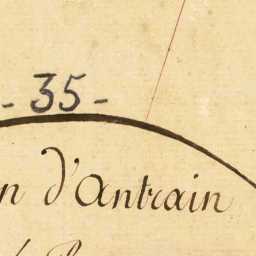 - 35 -
n d'Antrain